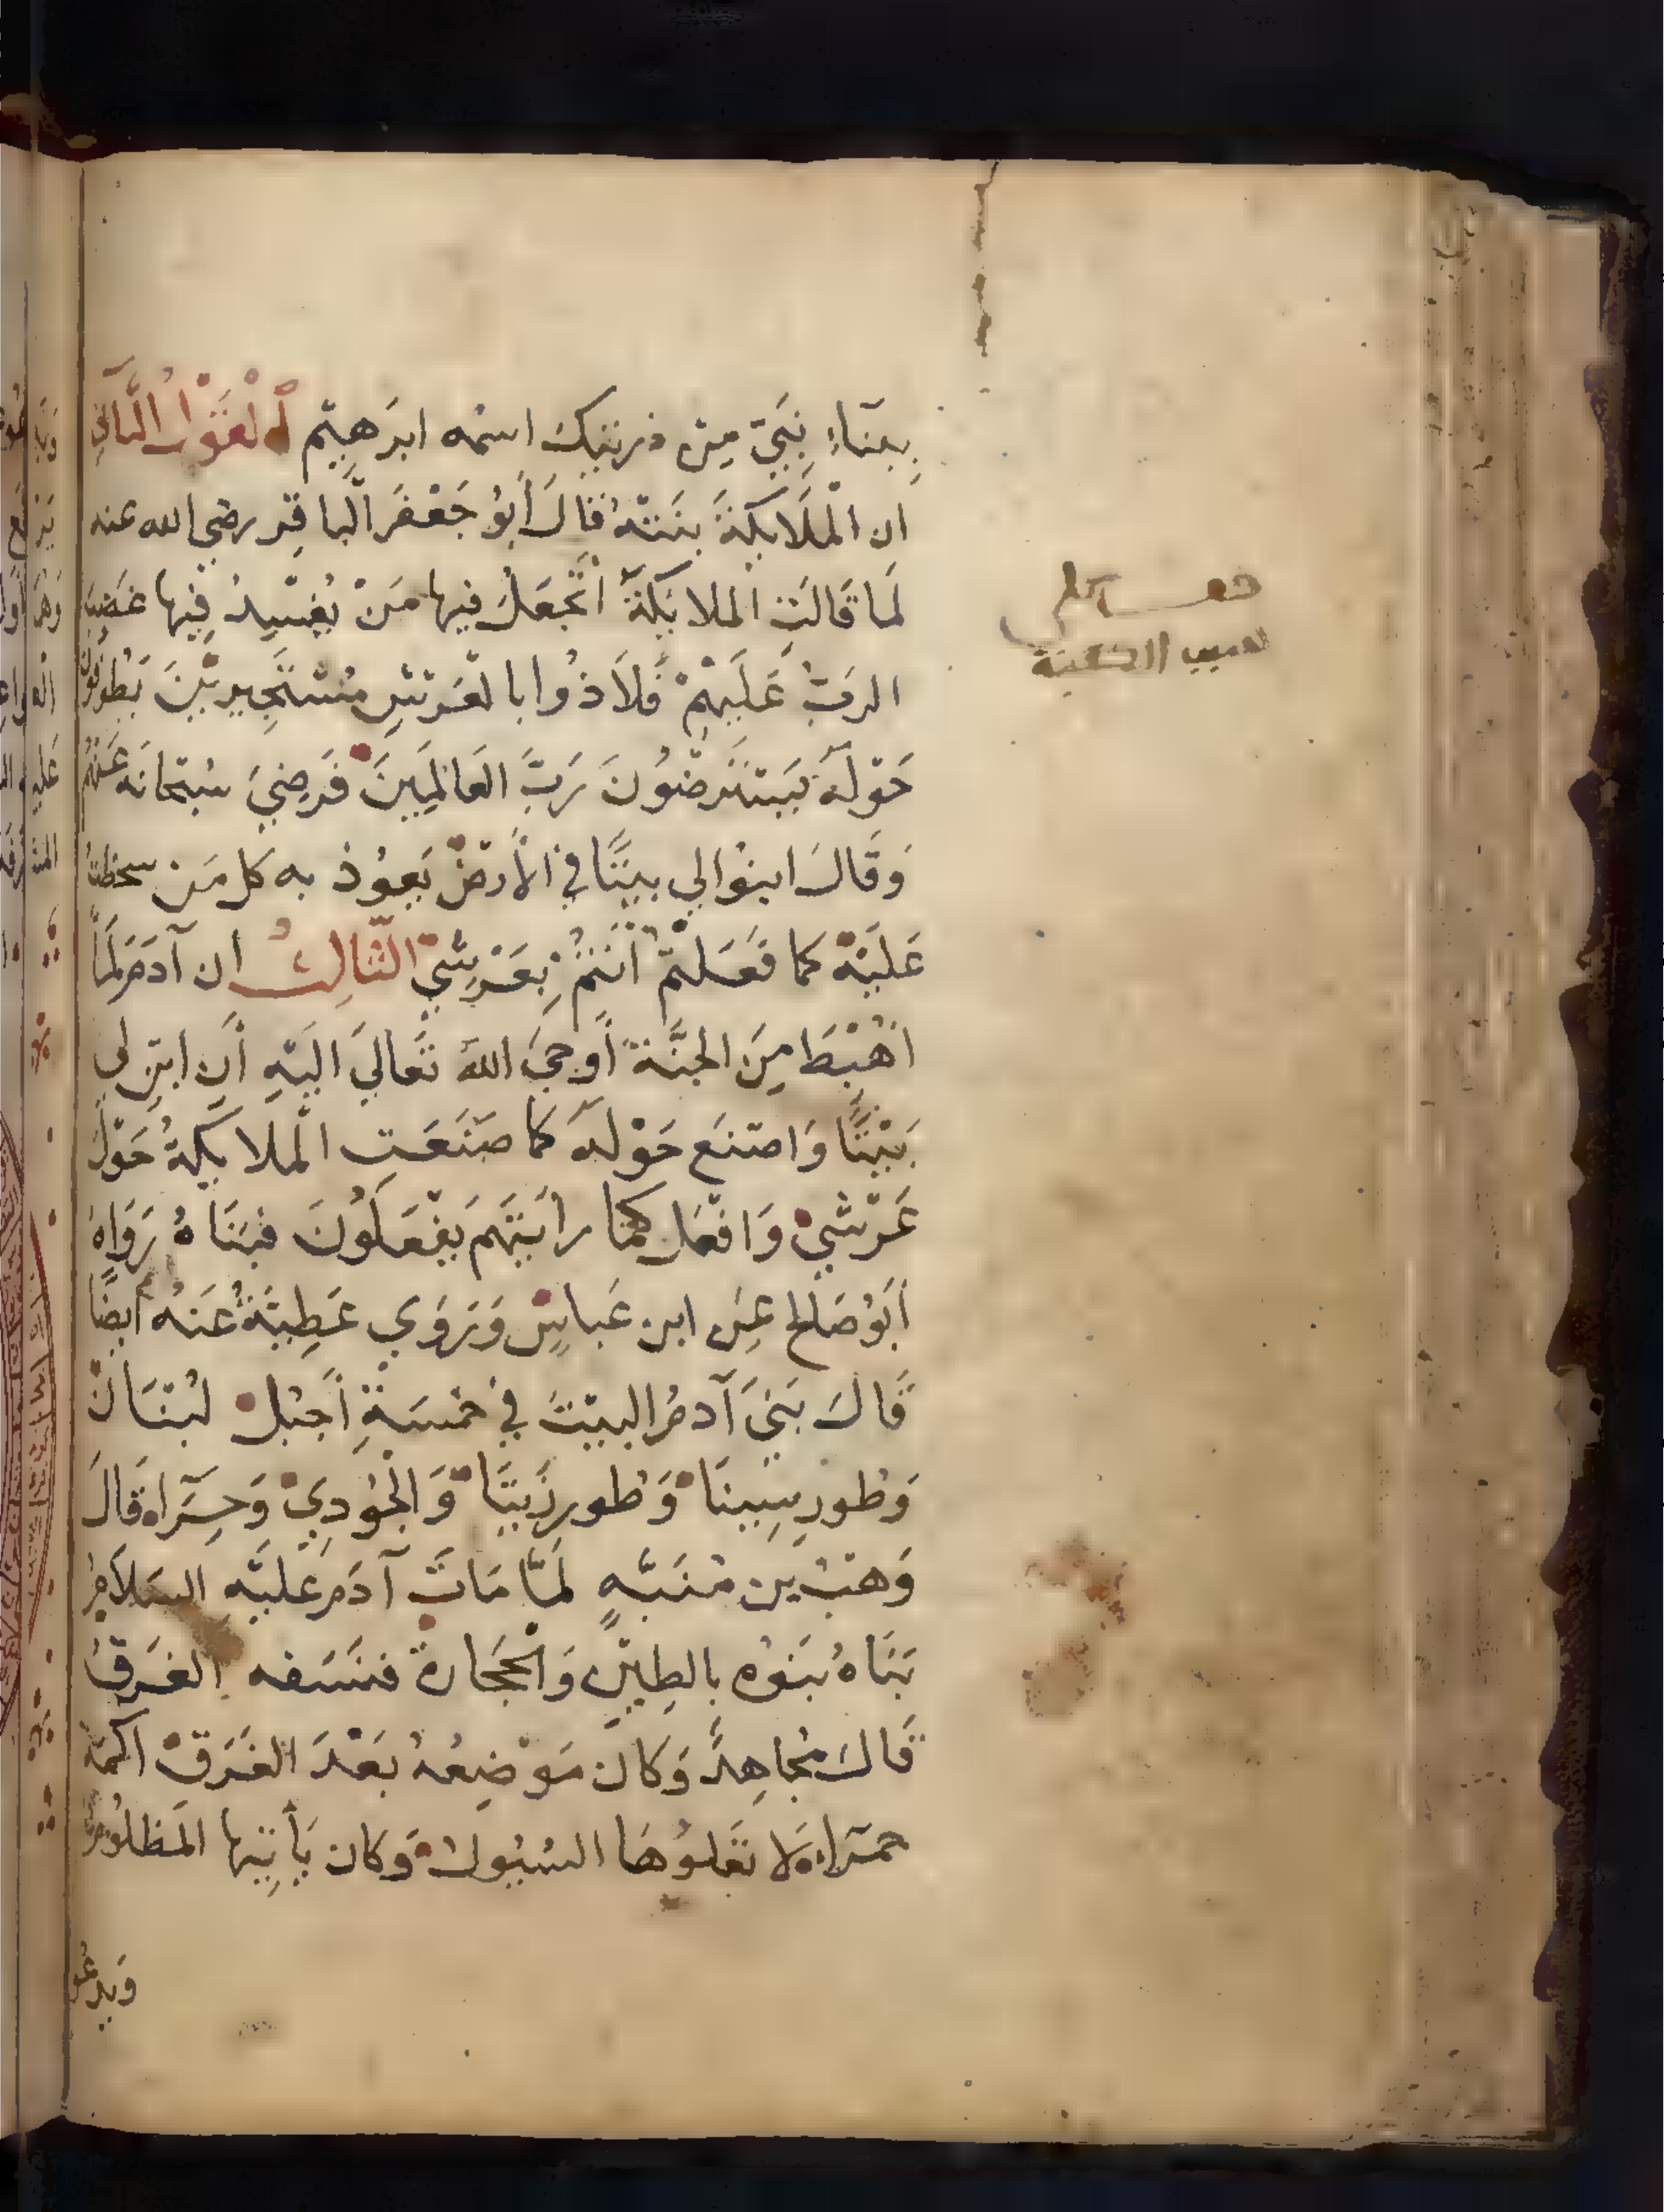 بِبِنَاءِ نَبِيّ مِن ذريتك اسمه ابرَهِيم اَلْقَوْلُ الثَّانِي
ان الْمَلَايِكَةَ بنَتْهُ قَالَ أَبُو جَعْفَر الْبَاقِر رضي الله عنه
لَما قَالَتِ الملايكَةُ اَتَجعَلُ فِيها مَنْ يُفسِدُ فِيها غَضِبَ
الرَبُّ عَلَيهِمْ فَلَاذُوا بالعَرْشِ مُستَجِيرِينَ يَطُوفُونَ
حَوْلَهُ يَستَرضُونَ رَبَّ العَالَمِينَ فَرضِيَ سُبحَانَه عَنْهُم
وَقَالَ ابنُوا لِي بيتًا فِي الأَرضِ يَعوُذ به كل مَن سخطتُ
عَلَيْهِ كما فَعَلتُمْ اَنتُمْ بِعَرْشِي الثَّالِثُ ان آدَمَ لَمَّا
اُهْبِطَ مِنَ الجنَّةِ أَوحَيَ اللهُ تَعَالَيَ اليَهِ أَنِ ابنِ لِي
بَيْتًا وَاصنَع حَوْلَهُ كما صَنَعَتِ الْملايكَةُ حَوْلَ
عَرْشِي وَافعَل كَما رَايتَهُم يَفْعَلُونَ فبَنَاهُ رَوَاهُ
أَبُو صَالِح عن ابن عَباسٍ وَرَوَي عَطِيَّةُ عَنهُ أَيضًا
قَالَ بَنَي آدمُ البيْتَ فِي خمسَةِ أَجبُل لبْنَان
وَطُور سِينَا وَطُور زَيتَا وَالجُودِي وَحِرَاء قَالَ
وَهْبُ بن مُنَبِّهٍ لَمَّا مَاتَ آدَم عَلَيْهِ السَلَامُ
بَنَاهُ بَنُوه بالطِينِ وَالْحجَارة فنسَفه الغَرقُ
قَالَ مجَاهِدٌ وَكان مَوضِعُهُ بَعْدَ الغَرَقِ اكمة
حمرَاء لا تَعلُوهَا السُيُولُ وَكان يَأتِيها المَظلُومُ
وَيدعُو